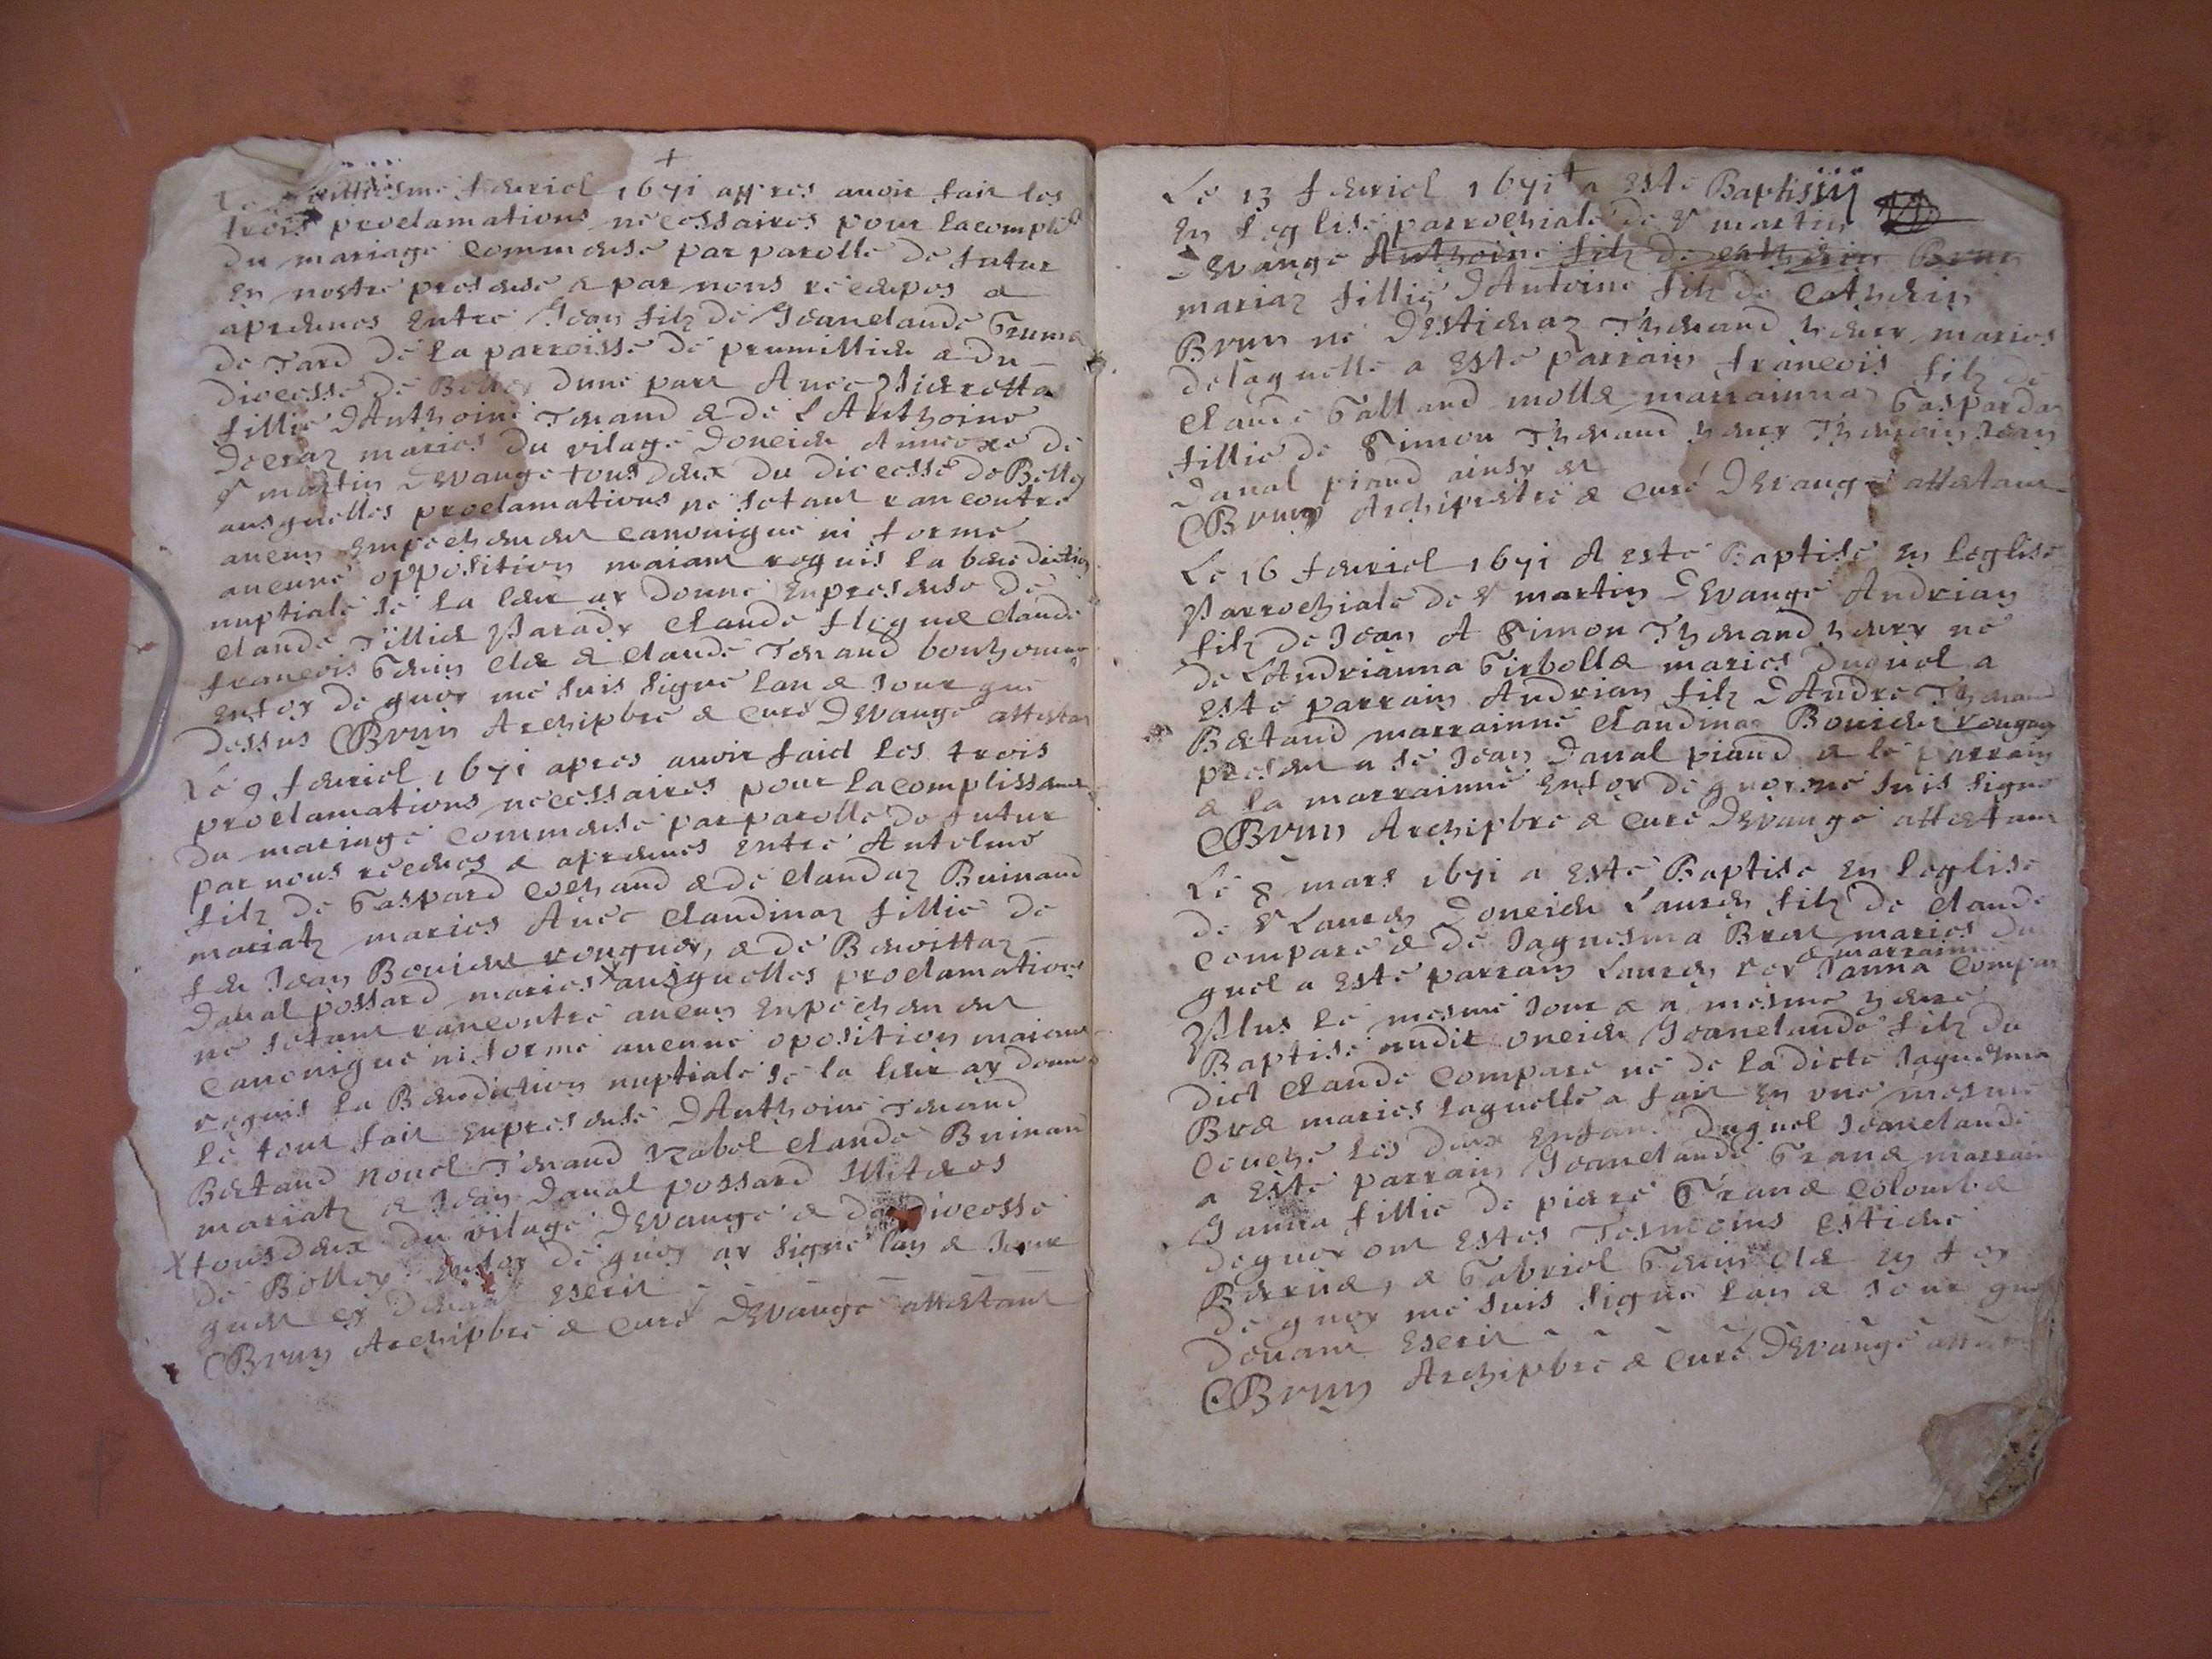 +
Le huittiesme feuriel 1671 appres auoir fait les
trois proclamations necessaires pour lacompl
du mariage Commensé par parolle de futur
En nostre presense & par nous receupes a
apreuues Entre Jean filz de Jeanclaude
de Tard de la parroisse de prumillieu & du
diocesse de Belley dune part Auec Pierrotta
fillie dAnthoine Tenand & de LAnthoina
mariés du vilage doncieu Annexe de
St martin Devauge tous deux du diocesse de Belley
ausquelles proclamations ne sétant rancontré
aucun Empechement canonique ni formé
aucune oppositiony maiant requis la benediction
nuptiale je la leur ay donné Enpresense de
Claude Tillier Parady Claude claude
francois & claude Tenand bonhomme
Enfoy de quoy me suis signé lan & Jour que
dessus Brun Archipbre & Curé Devauge attestant
Le 9 feuriel 1671 apres auoir faict les trois
proclamations necessaires pour lacomplissement
du mariage Commensé par parolle de futur
par nous receues & apreuues Entre Antelme
filz de Gaspard Cochand & de Claudaz Buinand
mariatz mariés Auec Claudinaz fillie de
feu Jean Bouier rouguoy, & de Benoittaz
daual possard mariés X ausquelles proclamations
ne sétant rancontré aucun Enpechement
Canonique ni formé aucune oposition maiant
requis la Benediction nuptiale je la leur ay donné
le tout fait Enpresense dAnthoine Tenand
Bertand nouel Tenand Rabel Claude Buinand
mariatz & Jean daual possard Illiteres
X tous deux du vilage Devauge & du diocesse
de Belley Enfoy de quoy ay signé lan & Jour
que deuant Escrit
Brun Archipbre & Curé Devauge attestant
Le 13 feuriel 1671 + a Esté Baptis
En leglise parrochiale de St martin
Devauge Anthoine filz de cathelin Brun
mariaz fillie dAntoine filz de Cathelin
Brun né dEstienaz Thenand heury mariés
delaquelle a Esté parrain francois filz de
Claude Galland molle marrainna Gaspardaz
fillie de Simon Thenand heury Themoin Jean
daual piaud ainsy est
Brun Archiprestre & Curé Devauge attestant
Le 16 feuriel 1671 A esté Baptisé En leglise
Parrochiale de St martin Devauge Andrian
filz de Jean A Simon Thenand heury né
de LAndrianna Girbolle mariés duquel a
esté parrain Andrian filz dAndré Thenand
Bertand marrainne Claudinaz Bouier rouguoy
present a ce Jean daual piaud & le parrain
& la marrainne Enfoy de quoy me suis signé
Brun Archipbre & Curé Devauge attestant
Le 8 mars 1671 a Esté Baptisé En leglise
de St Laurent doncieu Laurent filz de Claude
Comparé & de Jaquesma Bret mariés du
quel a Esté parrain Laurent rey & marraine Janna Compar
Plus le mesme Jour & a mesme heure
Baptisé audit oncieu Jeanclaude filz du
dict Claude Comparé né de la dicte Jaquesma
Bre mariés laquelle a fait En vne mesme
Couche les deux Enfans duquel Jeanclaude
a Esté parrain Jeanclaude marrain
Janna fillie de pierre Colombe
dequoy ont Estés Tesmoins Estiene
& Gabriel En foy
de quoy me suis signé lan & Jour que
deuant Escrit
Brun Archipbre & Curé Devauge attestant